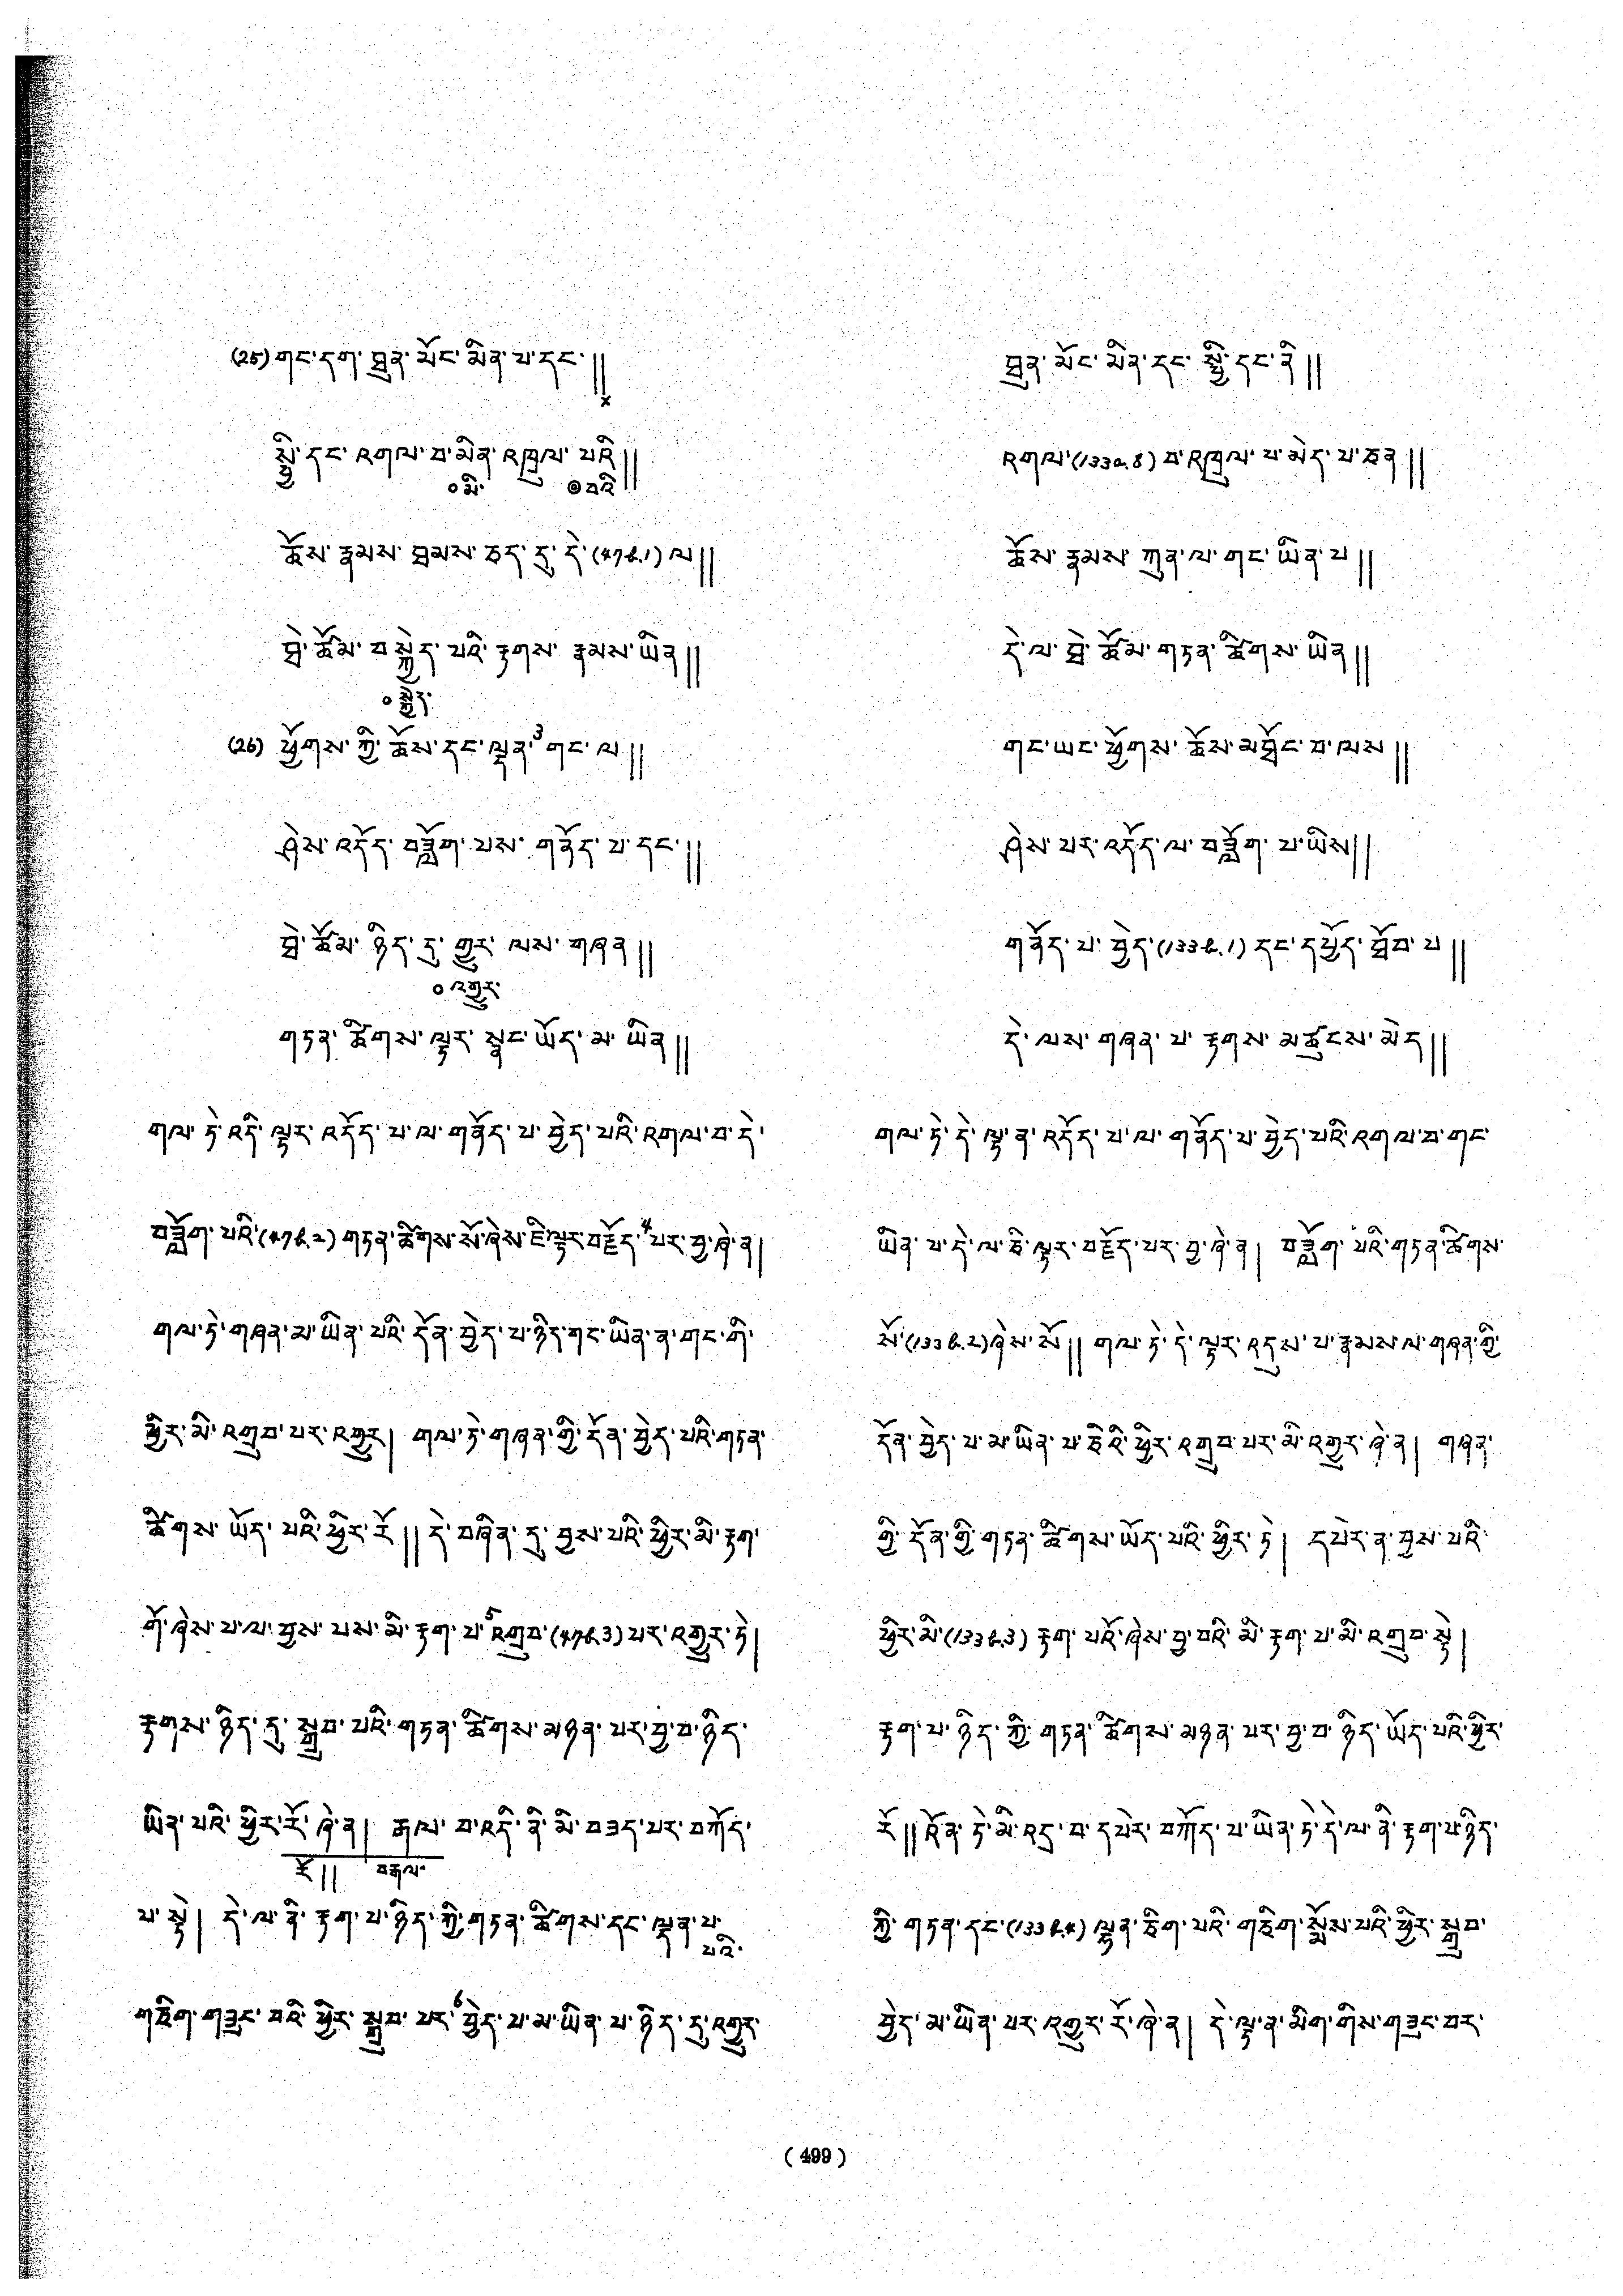 (25) གང་དག་ ཐུན་ མོང་ མིན་ པ་དང་ །།
×
སྤྱི་ དང་ འགལ་ བ་ མིན་ འཁྲུལ་ པའི །།
○ མི་ ◎ བའི
ཆོས་ རྣམས་ ཐམས་ ཅད་ དུ་ དེ་ (47b.1) ལ །།
ཐེ་ ཚོམ་ བ སྐྱེད་ པའི་ རྟགས་ རྣམས་ ཡིན །།
○ སྐྱེད་
(26) ཕྱོགས་ ཀྱི་ ཆོས་ དང་ ལྡན་³ གང་ ལ །།
ཤེས་ འདོད་ བཟློག་ པས་ གནོད་ པ་ དང་ །།
ཐེ་ ཚོམ་ ཉིད་ དུ་ གྱུར་ ལས་ གཞན །།
○ འགྱུར་
གཏན་ ཚིགས་ ལྟར་ སྣང་ ཡོད་ མ་ ཡིན །།
གལ་ ཏེ་ འདི་ ལྟར་ འདོད་ པ་ ལ་ གནོད་ པ་ བྱེད་ པའི་ འགལ་ བ་ དེ་
བཟློག་ པའི་ (47b.2) གཏན་ ཚིགས་ སོ་ ཞེས་ ཇི་ ལྟར་ བརྗོད་⁴ པར་ བྱ་ ཞེ་ ན །
གལ་ ཏེ་ གཞན་ མ་ ཡིན་ པའི་ དོན་ བྱེད་ པ་ ཉིད་ གང་ ཡིན་ ན་ གང་ གི་
ཕྱིར་ མི་ འགྲུབ་ པར་ འགྱུར །  གལ་ ཏེ་ གཞན་ གྱི་ དོན་ བྱེད་ པའི་ གཏན་
ཚིགས་ ཡོད་ པའི་ ཕྱིར་ རོ །། དེ་ བཞིན་ དུ་ བྱས་ པའི་ ཕྱིར་ མི་ རྟག་
གོ་ ཞེས་ པ་ ལ་ བྱས་ པས་ མི་ རྟག་ པ་⁵ འགྲུབ་ (47b.3) པར་ འགྱུར་ ཏེ །
རྟགས་ ཉིད་ དུ་ སྒྲུབ་ པའི་ གཏན་ ཚིགས་ མཉན་ པར་ བྱ་ བ་ ཉིད་
ཡིན་ པའི་ ཕྱིར་ རོ་ ཞེ་ ན །  རྒལ་ བ་ འདི་ ནི་ མི་ བཟད་ པར་ བཀོད་
རོ །། བརྒལ་
པ་ སྟེ །  དེ་ ལ་ ནི་ རྟག་ པ་ ཉིད་ ཀྱི་ གཏན་ ཚིགས་ དང་ ལྡན་ པ་
པའི་
གཅིག་ གཟུང་ བའི་ ཕྱིར་ སྒྲུབ་ པར་⁶ བྱེད་ པ་ མ་ ཡིན་ པ་ ཉིད་ དུ་ འགྱུར་
ཐུན་ མོང་ མིན་ དང་ སྤྱི་ དང་ ནི །།
འགལ་ (133a.8) བ་ འཁྲུལ་ པ་ མེད་ པ་ ཅན །།
ཆོས་ རྣམས་ ཀུན་ ལ་ གང་ ཡིན་ པ །།
དེ་ ལ་ ཐེ་ ཚོམ་ གཏན་ ཚིགས་ ཡིན །།
གང་ ཡང་ ཕྱོགས་ ཆོས་ མཐོང་ བ་ ལས །།
ཤེས་ པར་ འདོད་ ལ་ བཟློག་ པ་ ཡིས །།
གནོད་ པ་ བྱེད་ (133b.1) དང་ དཔྱོད་ ཐོབ་ པ །།
དེ་ ལས་ གཞན་ པ་ རྟགས་ མཚུངས་ མེད །།
གལ་ ཏེ་ དེ་ ལྟ་ ན་ འདོད་ པ་ ལ་ གནོད་ པ་ བྱེད་ པའི་ འགལ་ བ་ གང་
ཡིན་ པ་ དེ་ ལ་ ཅི་ ལྟར་ བརྗོད་ པར་ བྱ་ ཞེ་ ན །  བཟློག་ པའི་ གཏན་ ཚིགས་
སོ་ (133b.2) ཞེས་ སོ །། གལ་ ཏེ་ དེ་ ལྟར་ འདུས་ པ་ རྣམས་ ལ་ གཞན་ གྱི་
དོན་ བྱེད་ པ་ མ་ ཡིན་ པ་ ཅིའི་ ཕྱིར་ འགྲུབ་ པར་ མི་ འགྱུར་ ཞེ་ ན །  གཞན་
གྱི་ དོན་ གྱི་ གཏན་ ཚིགས་ ཡོད་ པའི་ ཕྱིར་ ཏེ །  དཔེར་ ན་ བྱས་ པའི་
ཕྱིར་ མི་ (133b.3) རྟག་ པའོ་ ཞེས་ བྱ་ བའི་ མི་ རྟག་ པ་ མི་ འགྲུབ་ སྟེ །
རྟག་ པ་ ཉིད་ ཀྱི་ གཏན་ ཚིགས་ མཉན་ པར་ བྱ་ བ་ ཉིད་ ཡོད་ པའི་ ཕྱིར་
རོ །། འོན་ ཏེ་ མི་ འདྲ་ བ་ དཔེར་ བཀོད་ པ་ ཡིན་ ཏེ་ དེ་ ལ་ ནི་ རྟག་ པ་ ཉིད་
ཀྱི་ གཏན་ དང་ (133b.4) ལྷན་ ཅིག་ པའི་ གཅིག་ སྨོས་ པའི་ ཕྱིར་ སྒྲུབ་
བྱེད་ མ་ ཡིན་ པར་ འགྱུར་ རོ་ ཞེ་ ན །  དེ་ ལྟ་ ན་ མིག་ གིས་ གཟུང་ བར་
( 499 )